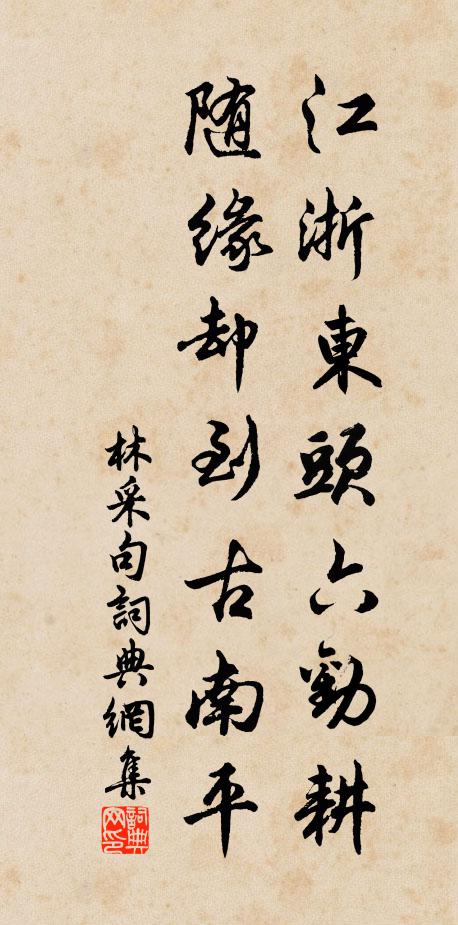 江浙東頭六勸耕
随缘却到古南平
林采句詞典網集
詞典网印